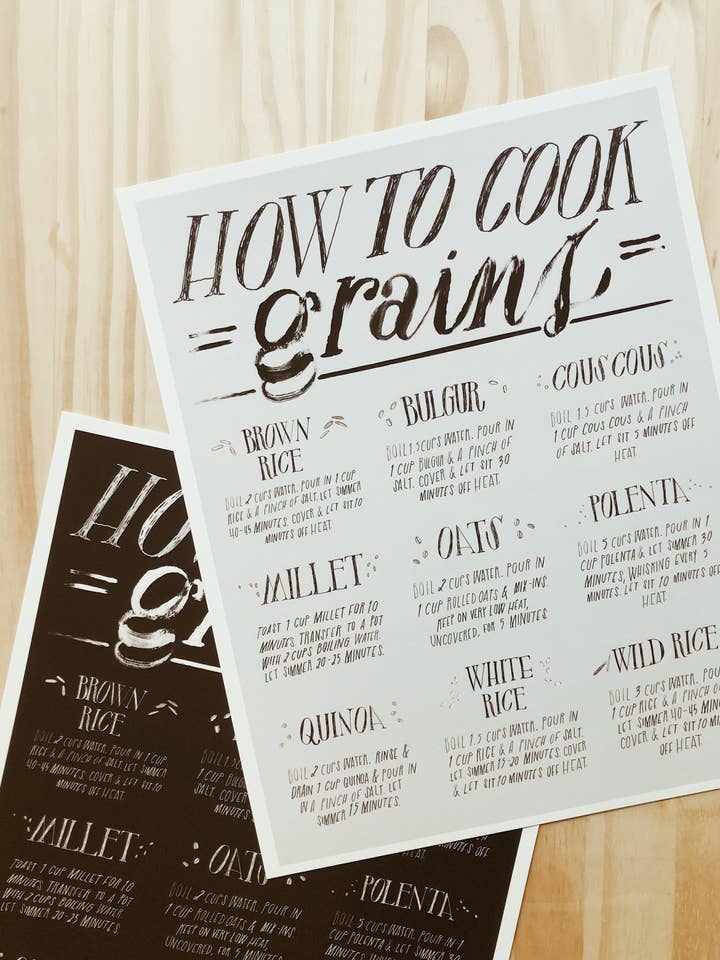 HOW TO COOK
= grains =
BROWN
RICE
BOIL 2 CUPS WATER. POUR IN 1 CUP
RICE & A PINCH OF SALT. LET SIMMER
40-45 MINUTES. COVER & LET SIT 10
MINUTES OFF HEAT.
BULGUR
BOIL 1.5 CUPS WATER. POUR IN
1 CUP BULGUR & A PINCH OF
SALT. COVER & LET SIT 30
MINUTES OFF HEAT.
COUS COUS
BOIL 1.5 CUPS WATER. POUR IN
1 CUP COUS COUS & A PINCH
OF SALT. LET SIT 5 MINUTES OFF
HEAT.
MILLET
TOAST 1 CUP MILLET FOR 10
MINUTES. TRANSFER TO A POT
WITH 2 CUPS BOILING WATER.
LET SIMMER 20-25 MINUTES.
OATS
BOIL 2 CUPS WATER. POUR IN
1 CUP ROLLED OATS & MIX-INS.
KEEP ON VERY LOW HEAT,
UNCOVERED, FOR 5 MINUTES.
POLENTA
BOIL 5 CUPS WATER. POUR IN 1
CUP POLENTA & LET SIMMER 30
MINUTES, WHISKING EVERY 5
MINUTES. LET SIT 10 MINUTES OFF
HEAT.
QUINOA
BOIL 2 CUPS WATER. RINSE &
DRAIN 1 CUP QUINOA & POUR IN
W A PINCH OF SALT. LET
SIMMER 15 MINUTES.
WHITE
RICE
BOIL 1.5 CUPS WATER. POUR IN
1 CUP RICE & A PINCH OF SALT.
LET SIMMER 15-20 MINUTES. COVER
& LET SIT 10 MINUTES OFF HEAT.
WILD RICE
BOIL 3 CUPS WATER. POU
1 CUP RICE & A PINCH OF
LET SIMMER 40-45 MIN
COVER & LET SIT 10 MINUT
OFF HEAT.
HO
= gr
BROWN
RICE
BOIL 2 CUPS WATER. POUR IN 1 CUP
RICE & A PINCH OF SALT. LET SIMMER
40-45 MINUTES. COVER & LET SIT 10
MINUTES OFF HEAT.
BOIL 1.
1 CUP
SALT. COVER
MINUTES OFF
MILLET
TOAST 1 CUP MILLET FOR 10
MINUTES. TRANSFER TO A POT
WITH 2 CUPS BOILING WATER.
LET SIMMER 20-25 MINUTES.
OATS
BOIL 2 CUPS WATER. POUR IN
1 CUP ROLLED OATS & MIX-INS
KEEP ON VERY LOW HEAT,
UNCOVERED, FOR 5 MINUTES.
POLENTA
BOIL 5 CUPS WATER. POUR IN
CUP POLENTA & LET SIMMER